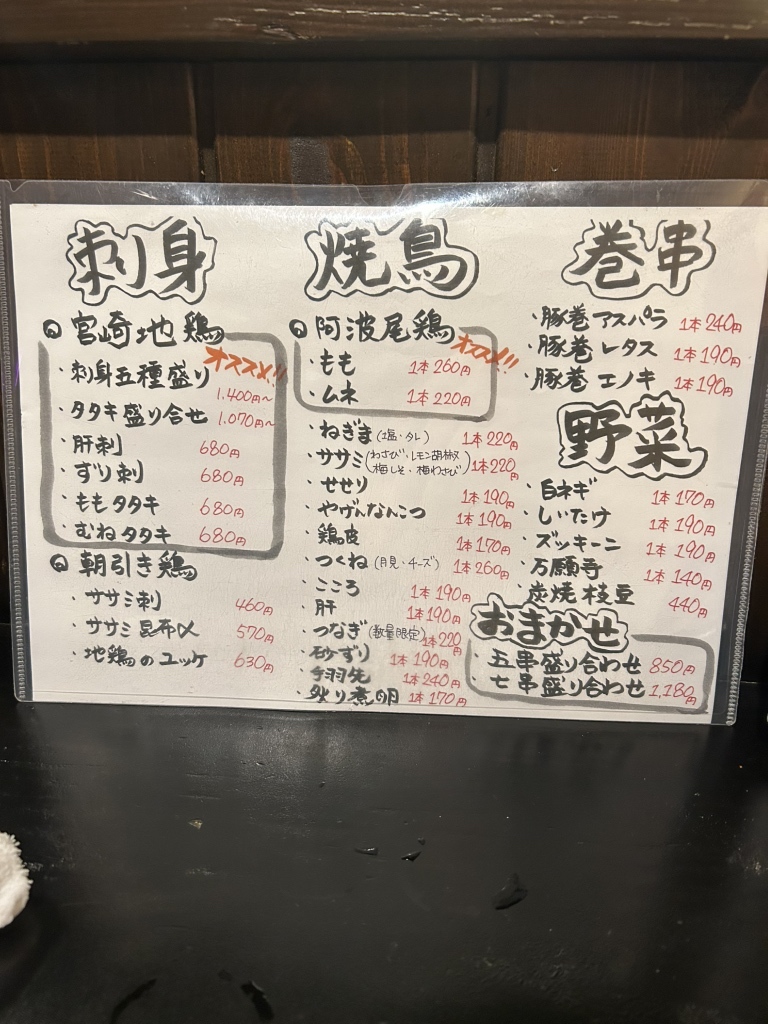 刺身
宮崎地鶏
オススメ!!
・刺身五種盛り 1,400円〜
・タタキ盛り合せ 1,070円〜
・肝刺 680円
・ずり刺 680円
・ももタタキ 680円
・むねタタキ 680円
朝引き鶏
・ササミ刺 460円
・ササミ昆布〆 570円
・地鶏のユッケ 630円
焼鳥
阿波尾鶏
オススメ!!
・もも 1本260円
・ムネ 1本220円
・ねぎま(塩・タレ) 1本220円
・ササミ(わさび・レモン胡椒 梅しそ・梅わさび) 1本220円
・せせり 1本190円
・やげんなんこつ 1本190円
・鶏皮 1本170円
・つくね(月見・チーズ) 1本260円
・こころ 1本190円
・肝 1本190円
・つなぎ(数量限定) 1本220円
・砂ずり 1本190円
・手羽先 1本240円
・炙り煮卵 1本170円
巻串
・豚巻アスパラ 1本240円
・豚巻レタス 1本190円
・豚巻エノキ 1本190円
野菜
・白ネギ 1本170円
・しいたけ 1本190円
・ズッキーニ 1本190円
・万願寺 1本140円
・炭焼枝豆 440円
おまかせ
・五串盛り合わせ 850円
・七串盛り合わせ 1,180円